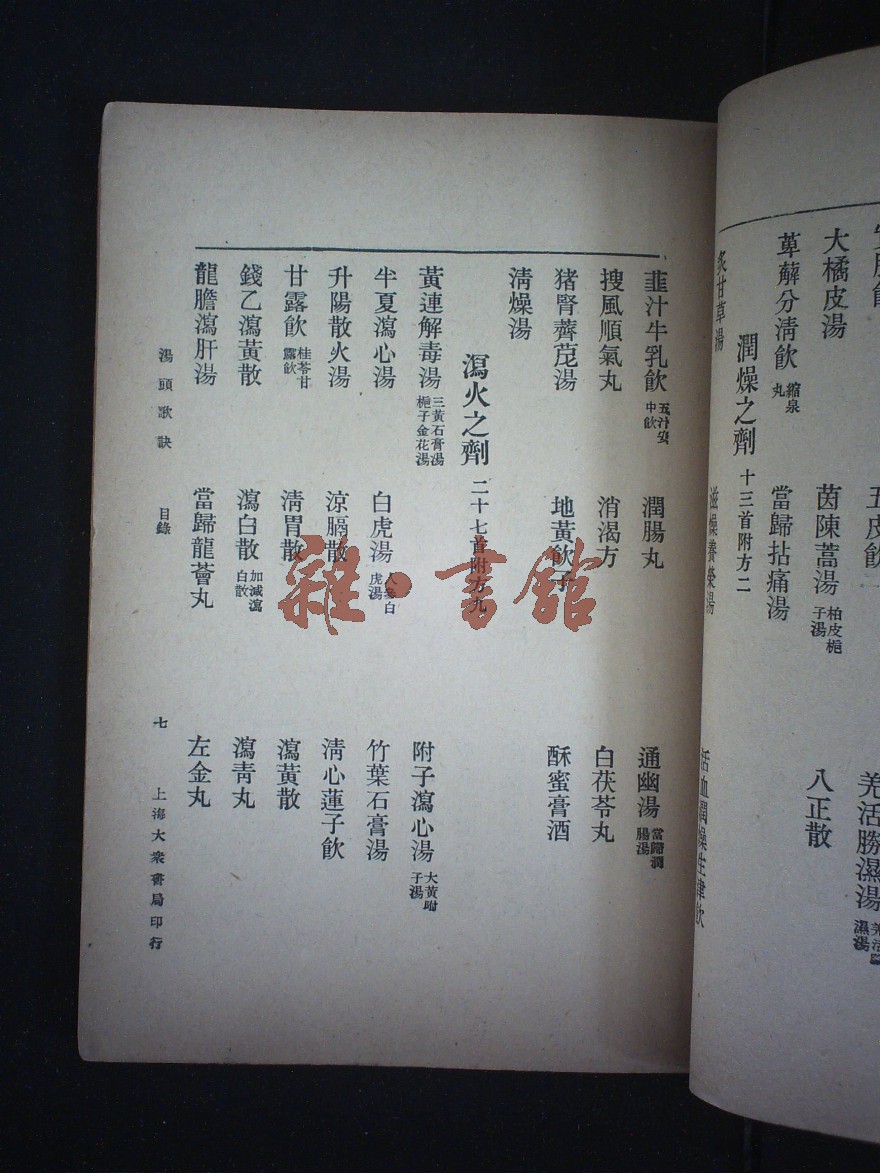 大橘皮湯
茵陳蒿湯 柏皮梔子湯
八正散
萆薢分清飲 縮泉丸
當歸拈痛湯
羌活勝濕湯
五皮飲
潤燥之劑 十三首附方二
炙甘草湯
滋燥養榮湯
活血潤燥生津飲
韭汁牛乳飲 五汁安中飲
潤腸丸
通幽湯 當歸潤腸湯
搜風順氣丸
消渴方
白茯苓丸
猪腎薺苨湯
地黃飲子
酥蜜膏酒
清燥湯
瀉火之劑 二十七首附方九
黃連解毒湯 三黃石膏湯 梔子金花湯
附子瀉心湯 大黃附子湯
半夏瀉心湯
白虎湯 人參白虎湯
竹葉石膏湯
升陽散火湯
涼膈散
清心蓮子飲
甘露飲 桂苓甘露飲
清胃散
瀉黃散
錢乙瀉黃散
瀉白散 加減瀉白散
瀉青丸
龍膽瀉肝湯
當歸龍薈丸
左金丸
湯頭歌訣 目錄 七 上海大衆書局印行
雜·書館